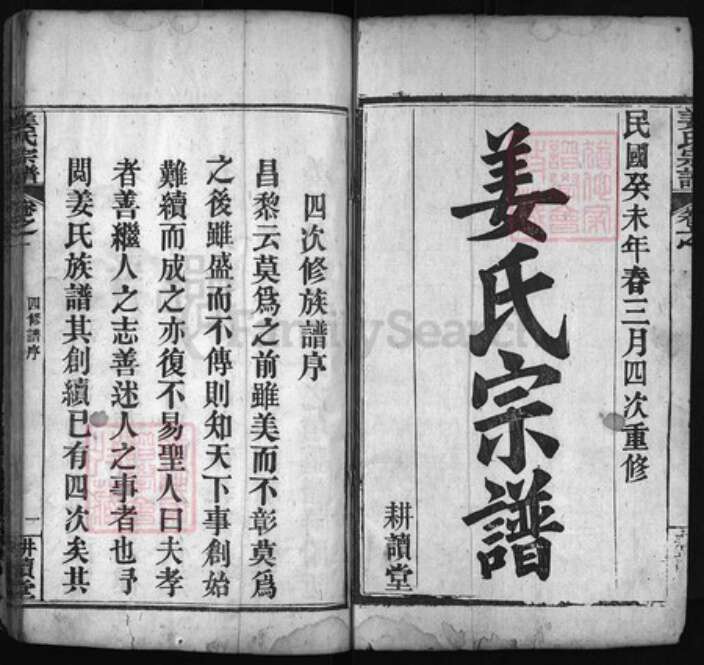 民國癸未年春三月四次重修
姜氏宗譜
耕讀堂
姜氏宗譜
卷之一
四次修族譜序
昌黎云莫爲之前雖美而不彰莫爲
之後雖盛而不傳則知天下事創始
難續而成之亦復不易聖人曰夫孝
者善繼人之志善述人之事者也予
閲姜氏族譜其創續已有四次矣其
姜氏宗譜
卷之一
四修譜序
一
耕讀堂
FamilySearch